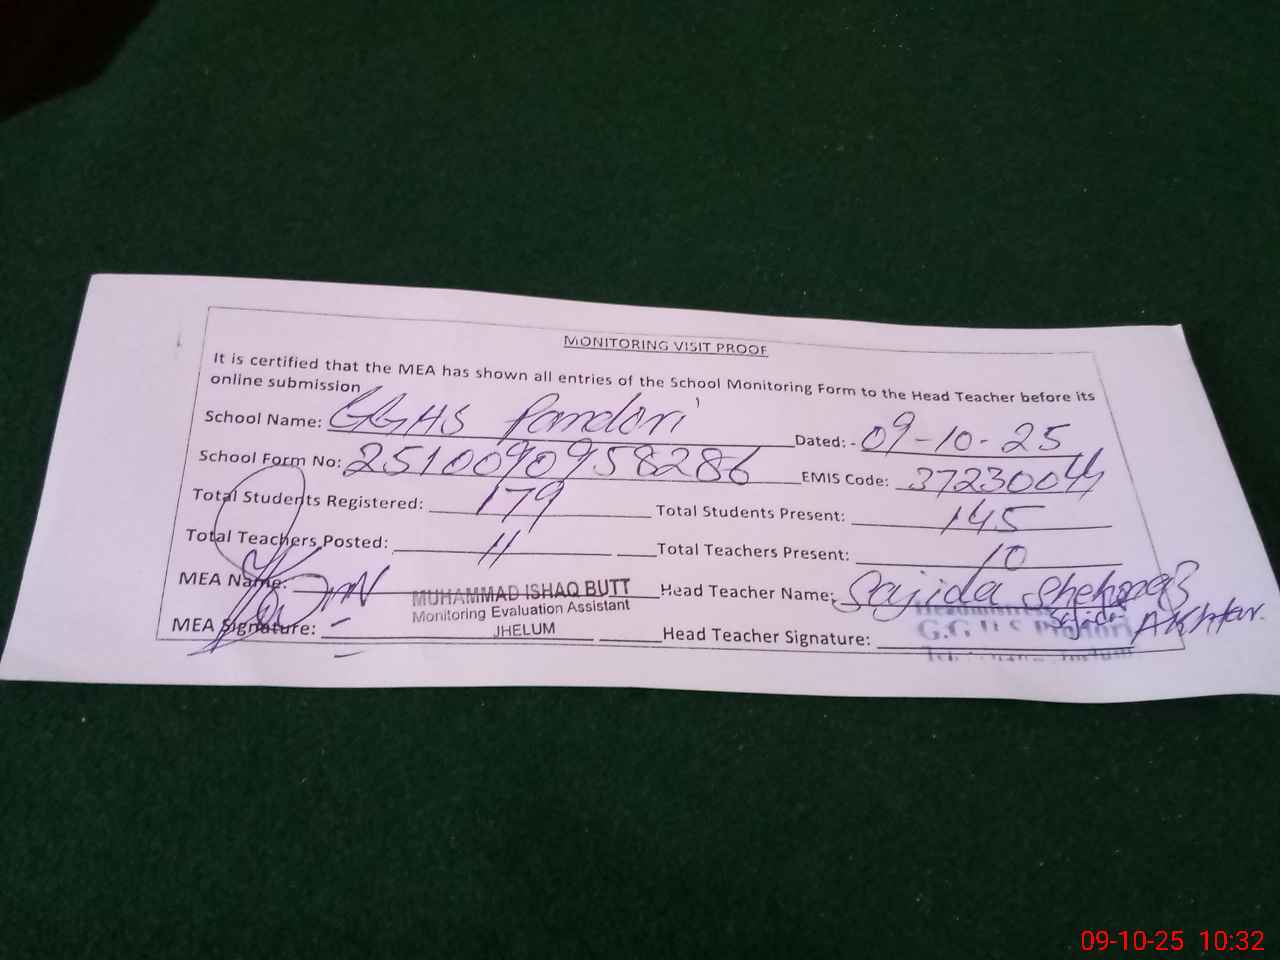 MONITORING VISIT PROOF
It is certified that the MEA has shown all entries of the School Monitoring Form to the Head Teacher before its
online submission
School Name: GGHS Pandori Dated: - 09-10-25
School Form No: 2510090958286 EMIS Code: 37230044
Total Students Registered: 179 Total Students Present: 145
Total Teachers Posted: 11 Total Teachers Present: 10
MEA Name: MUHAMMAD ISHAQ BUTT Head Teacher Name: Sajida
Monitoring Evaluation Assistant
Akhtar.
MEA Signature: JHELUM Head Teacher Signature:
G.G.H.S Pandori
09-10-25 10:32